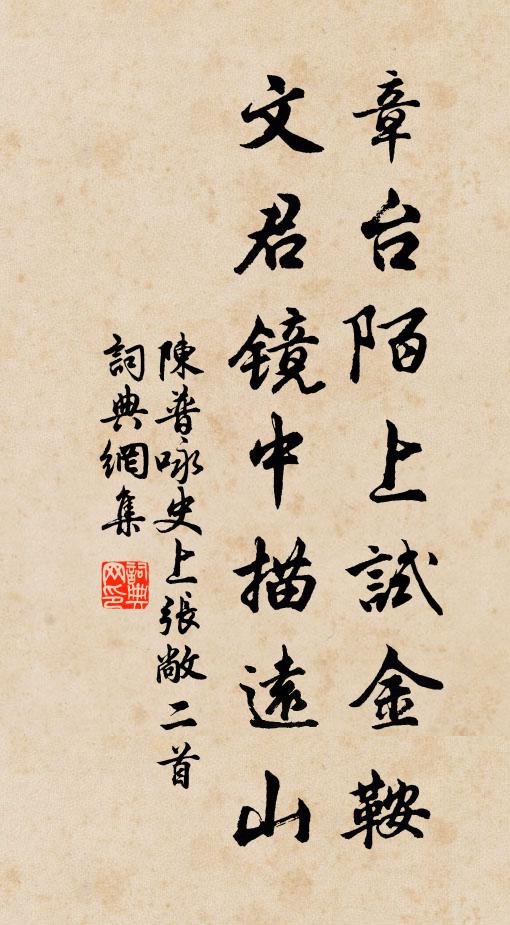 章台陌上試金鞍
文君镜中描遠山
陳普咏史上張敞二首
詞典網集
詞典网印